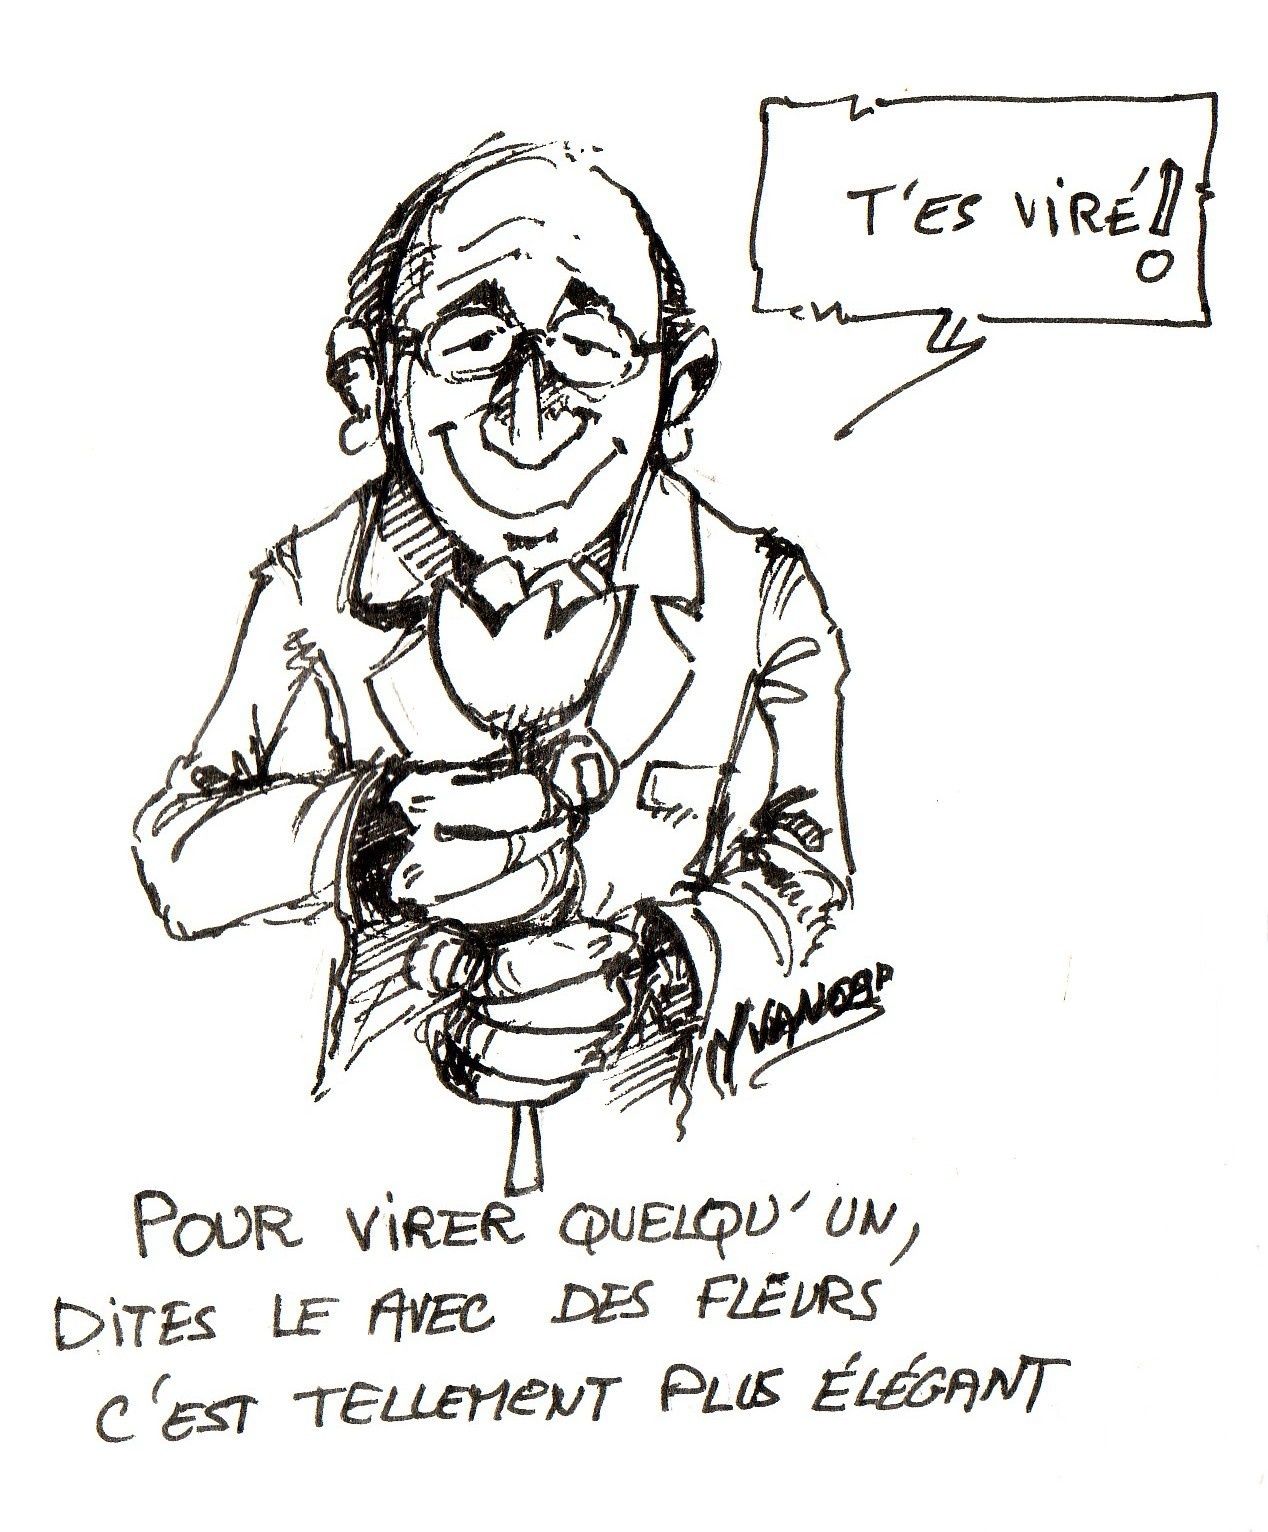 T'ES VIRÉ!
POUR VIRER QUELQU'UN,
DITES LE AVEC DES FLEURS
C'EST TELLEMENT PLUS ÉLÉGANT